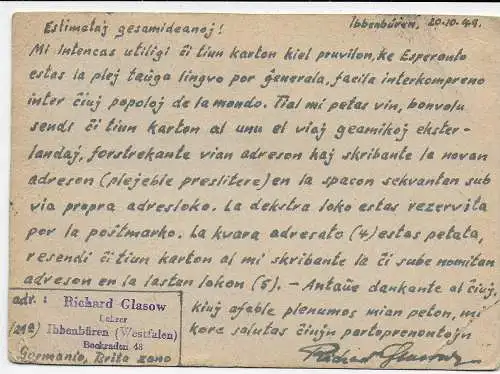 Ibbenbüren, 20.10.49.
Estimataj gesamideanoj!
Mi intencas utiligi ĉi tiun karton kiel pruvilon, ke Esperanto
estas la plej taŭga lingvo por ĝenerala, facila interkompreno
inter ĉiuj popoloj de la mondo. Tial mi petas vin, bonvolu
sendi ĉi tiun karton al unu el viaj geamikoj ekster-
landaj, forstrekante vian adreson kaj skribante la novan
adreson (plejeble preslitere) en la spacon sekvantan sub
via propra adresloko. La dekstra loko estas rezervita
por la poŝtmarko. La kvara adresato (4) estas petata,
resendi ĉi tiun karton al mi skribante la ĉi sube nomitan
adreson en la lastan lokon (5). – Antaŭe dankante al ĉiuj,
kiuj afable plenumos mian peton, mi
kore salutas ĉiujn partoprenontojn
adr.:
Richard Glasow
Lehrer
(21a) Ibbenbüren (Westfalen)
Bockraden 48
Germanio, Brita zono
Richard Glasow